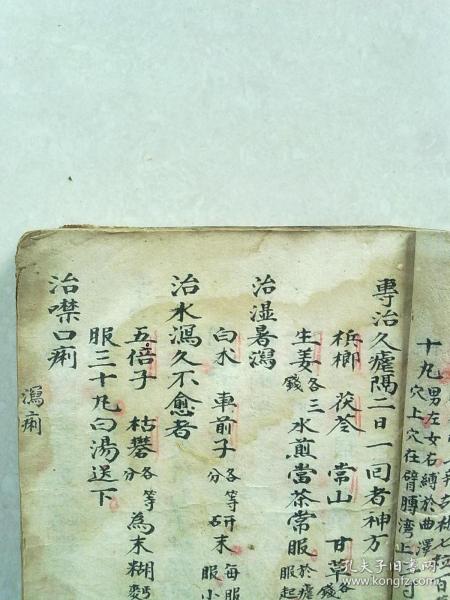 十丸男左女右縛於曲澤
穴上穴在臂膊湾上
專治久瘧隔二日一回者神方
梹榔 茯苓 常山 甘草各
生姜各三錢 水煎當茶常服於瘧
治湿暑瀉
白朮 車前子各等分 研末 每服
治水瀉久不愈者
五倍子 枯礬各等分 為末糊
服三十丸白湯送下
治噤口痢
瀉痢
孔夫子旧书网